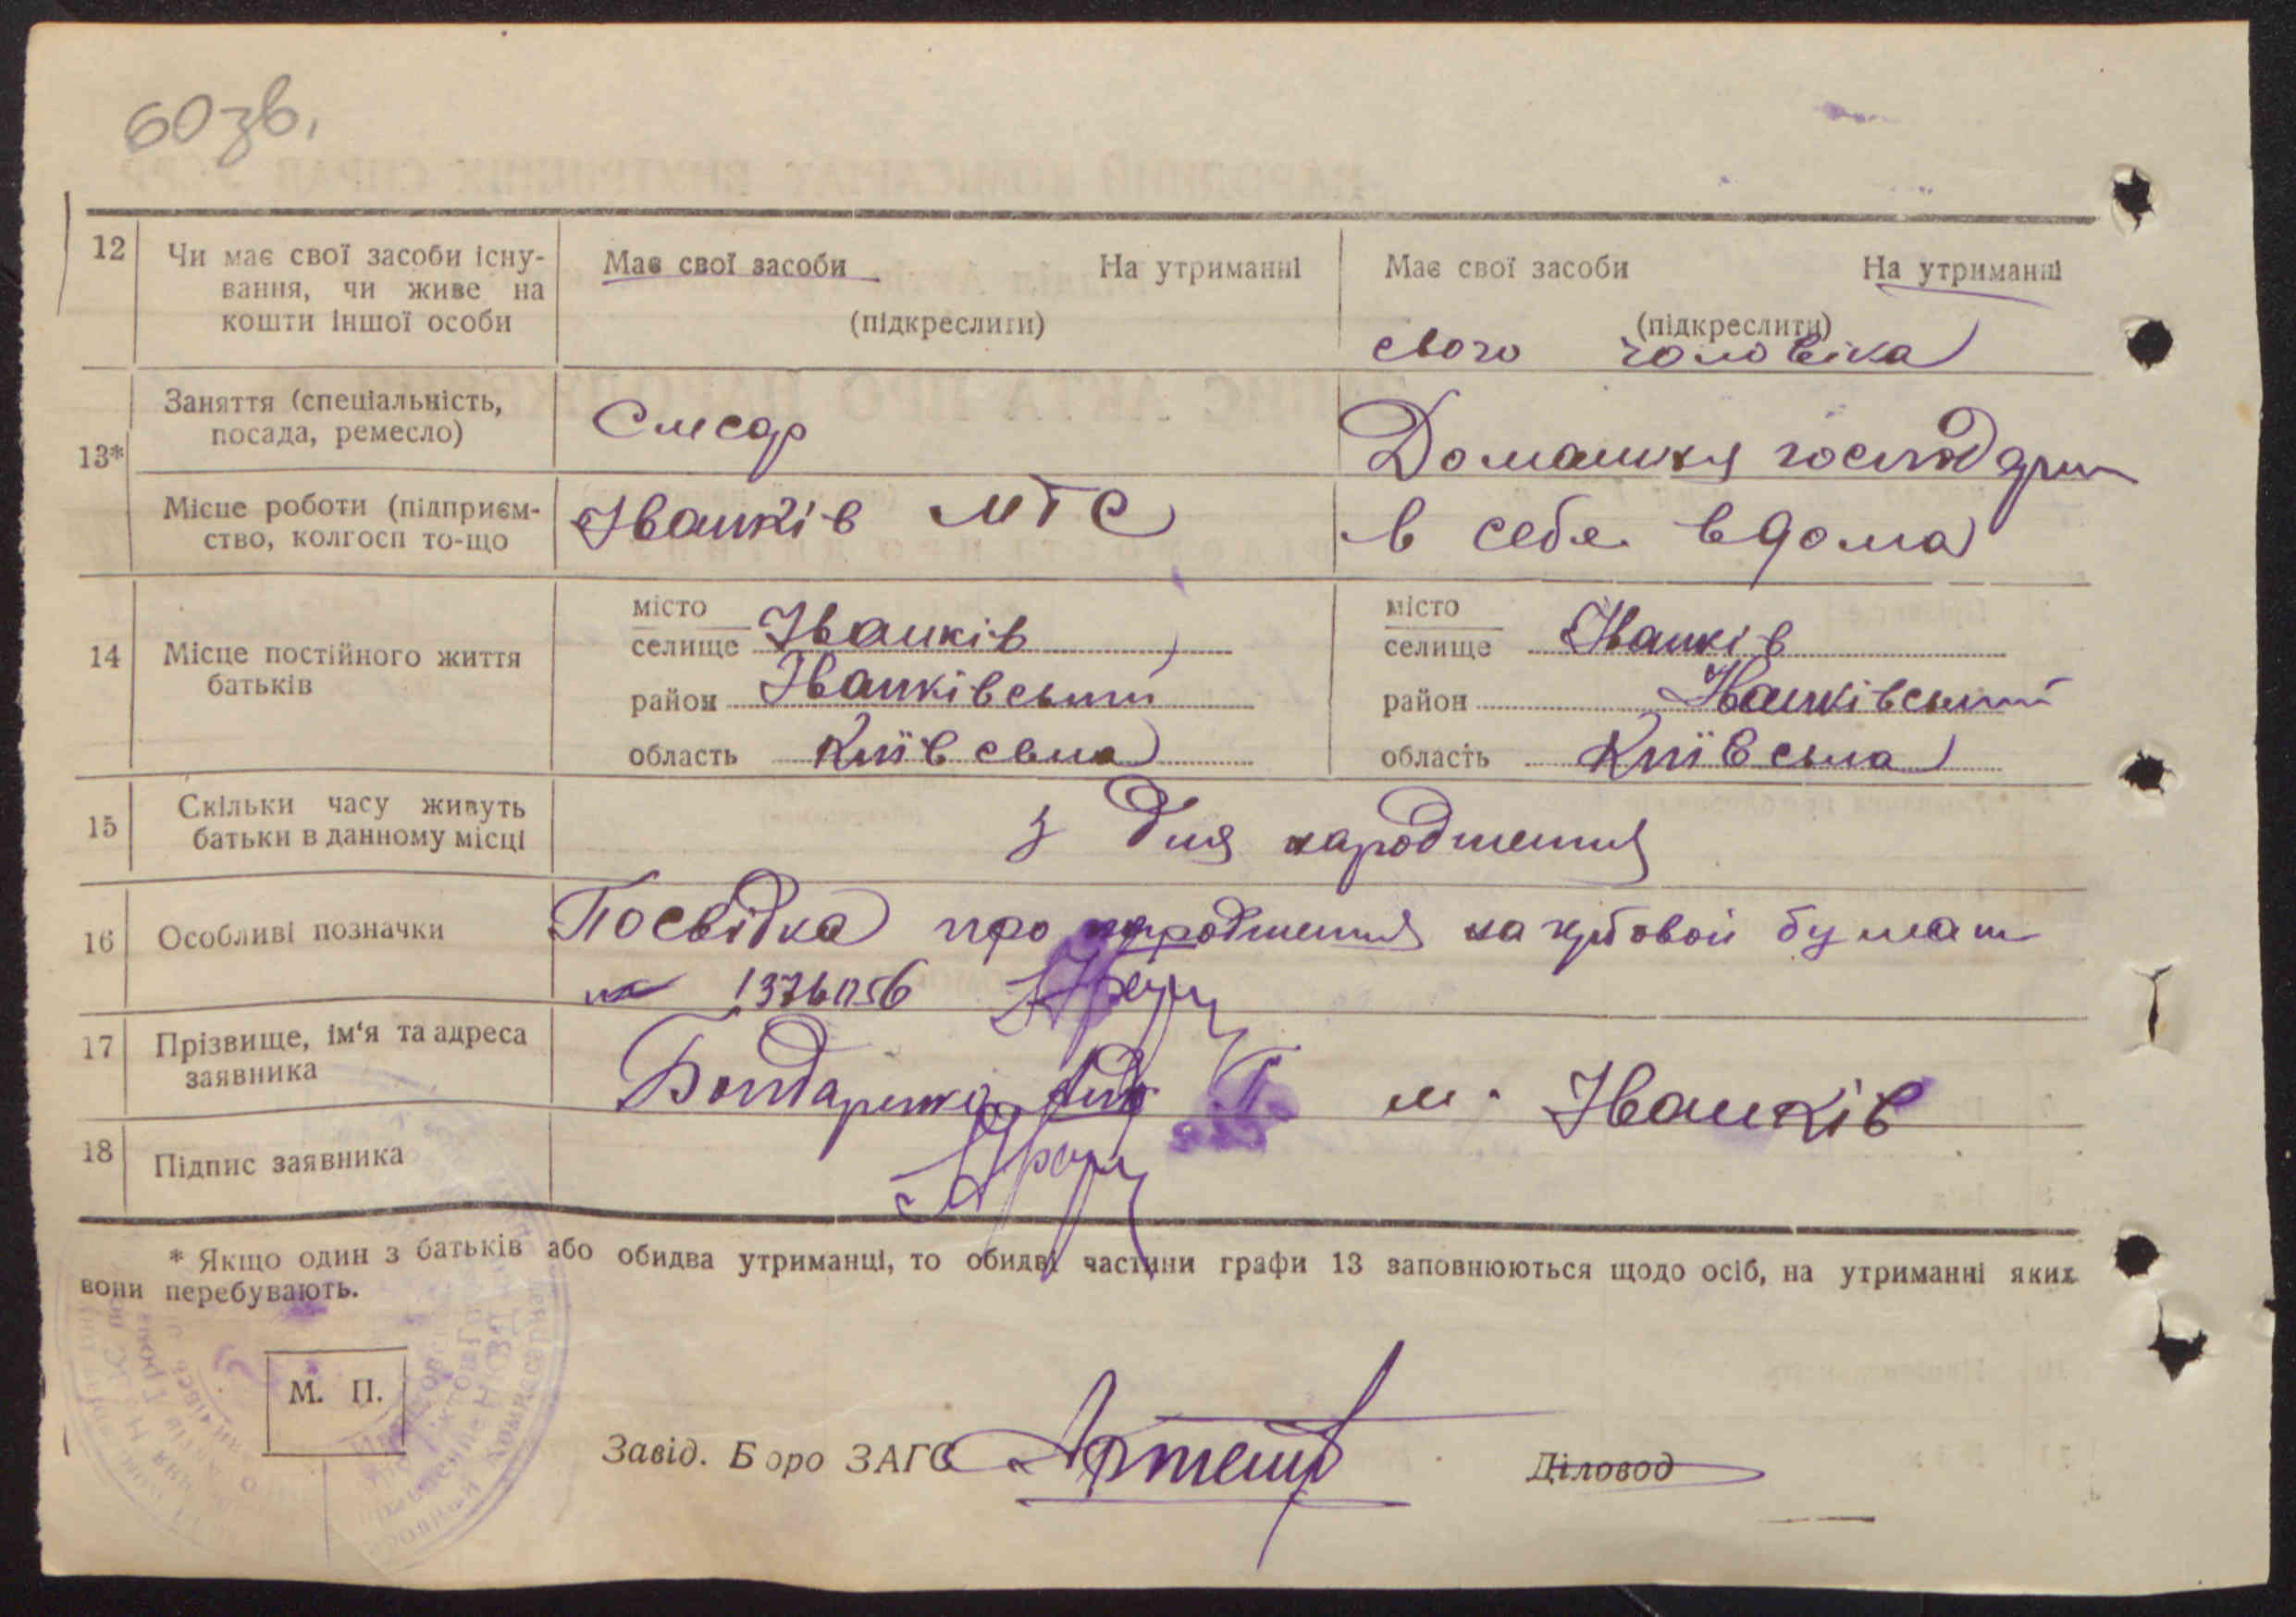 60зв.
12 Чи має свої засоби існу- Має свої засоби На утриманні Має свої засоби На утриманні
вання, чи живе на
кошти іншої особи (підкреслити) (підкреслити)
свого чоловіка
Заняття (спеціальність, Слюсар Домашня господарка
посада, ремесло)
13*
Місце роботи (підприєм- Іванків МТС в себе вдома
ство, колгосп то-що
місто місто
14 Місце постійного життя селище Іванків селище Іванків
батьків район Іванківський район Іванківський
область Київська область Київська
15 Скільки часу живуть з дня народження
батьки в данному місці
16 Особливі позначки Посвідка про народження на
17 Прізвище, ім'я та адреса Бондаренко м. Іванків
заявника
18 Підпис заявника
* Якщо один з батьків або обидва утриманці, то обидві частини графи 13 заповнюються щодо осіб, на утриманні яких
вони перебувають.
М. П.
Завід. Бюро ЗАГС Діловод